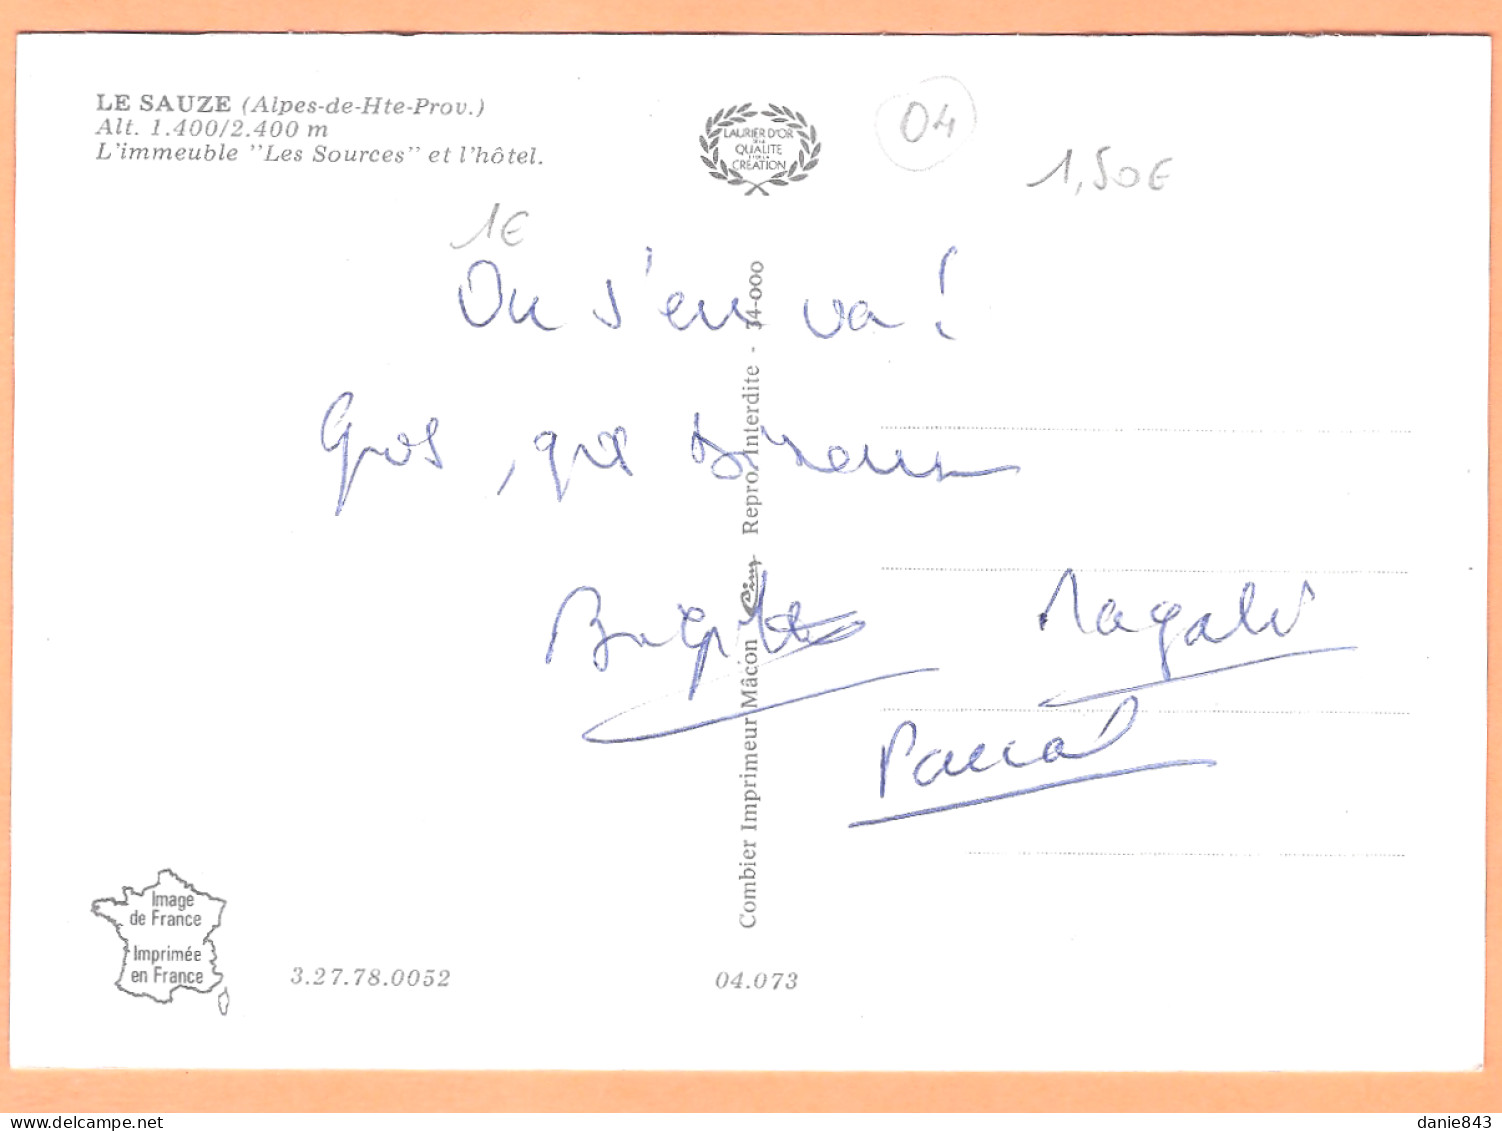 LE SAUZE (Alpes-de-Hte-Prov.)
Alt. 1.400/2.400 m
L'immeuble "Les Sources" et l'hôtel.
LAURIER D'OR
DE LA
QUALITE
ET DE LA
CRÉATION
04
1,50€
1€
On s'en va !
Gros, gros bisous
Brigitte
Magali
Pascal
Combier Imprimeur Mâcon Cim Repro. Interdite - 34-000
Image
de France
Imprimée
en France
3.27.78.0052
04.073
danie843